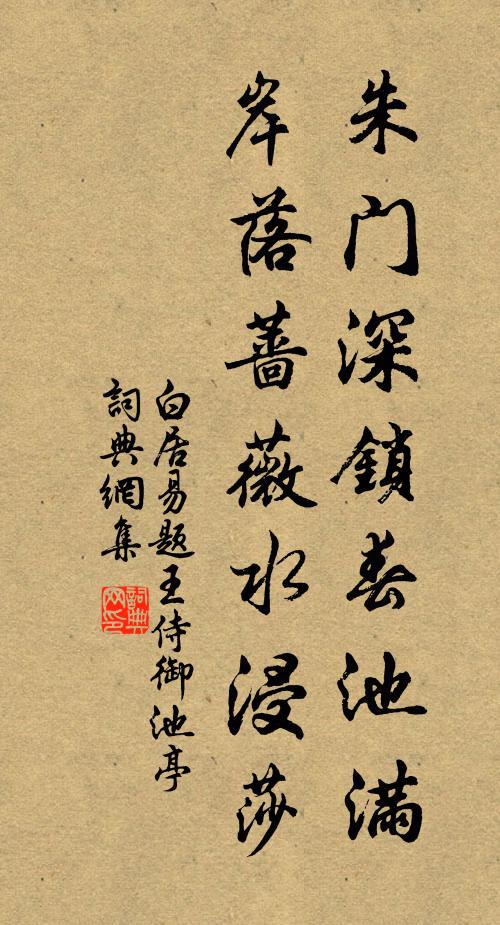 朱門深鎖春池滿
岸落薔薇水浸莎
白居易題王侍御池亭
詞典網集
詞典网印